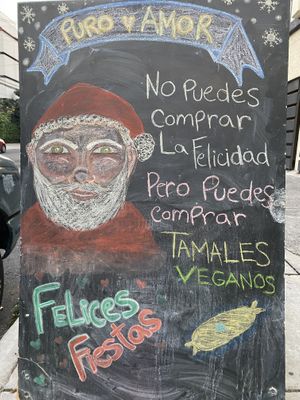 PURO Y AMOR
No Puedes
comprar
La Felicidad
Pero Puedes
comprar
TAMALES
VEGANOS
Felices
Fiestas